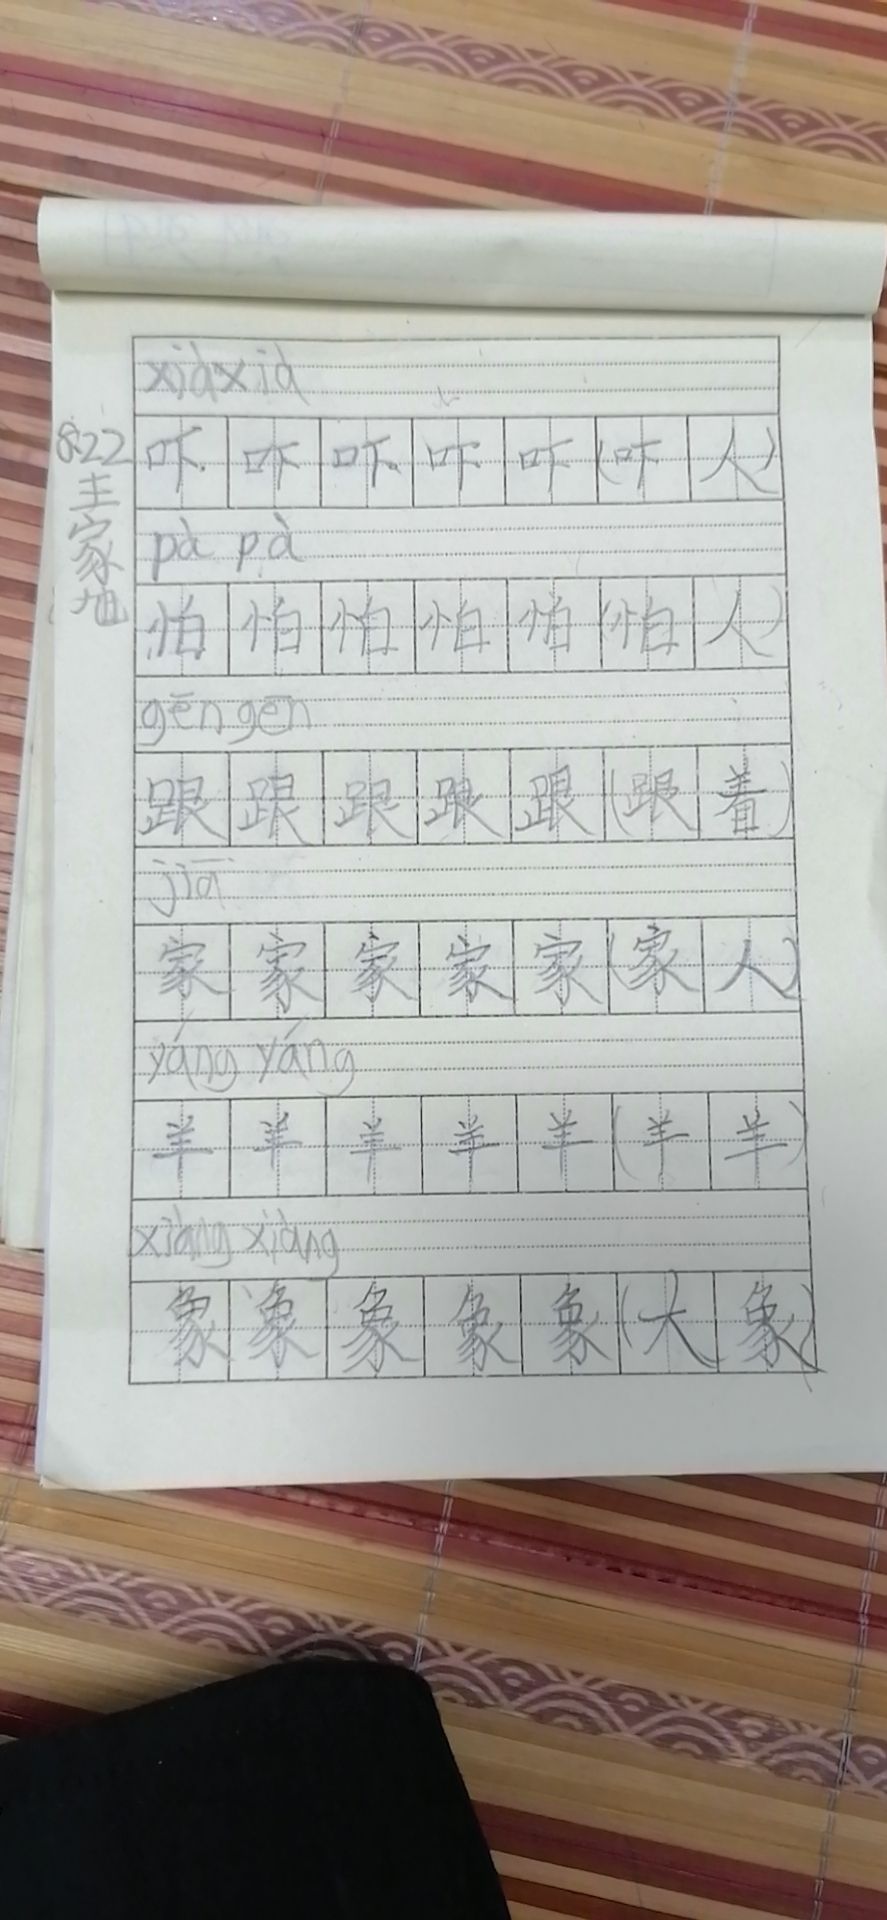 xià xià
吓 吓 吓 吓 吓 (吓 人)
8.22
pà pà
怕 怕 怕 怕 怕 (怕 人)
gēn gēn
跟 跟 跟 跟 跟 (跟 着)
jiā
家 家 家 家 家 (家 人)
yáng yáng
羊 羊 羊 羊 羊 (羊 羊)
xiàng xiàng
象 象 象 象 象 (大 象)